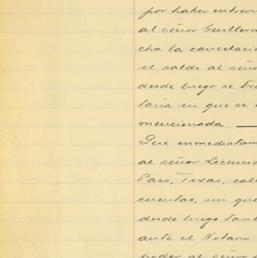 por haber entrever
al señor Guillerm
cha la cancelació
el saldo al seño
desde luego se
taria en que se
mencionada.
Que inmediatam
al señor Licencia
Paso, Texas, cal
cuentas, sin que
desde luego tamb
ante el Notario
poder al señor